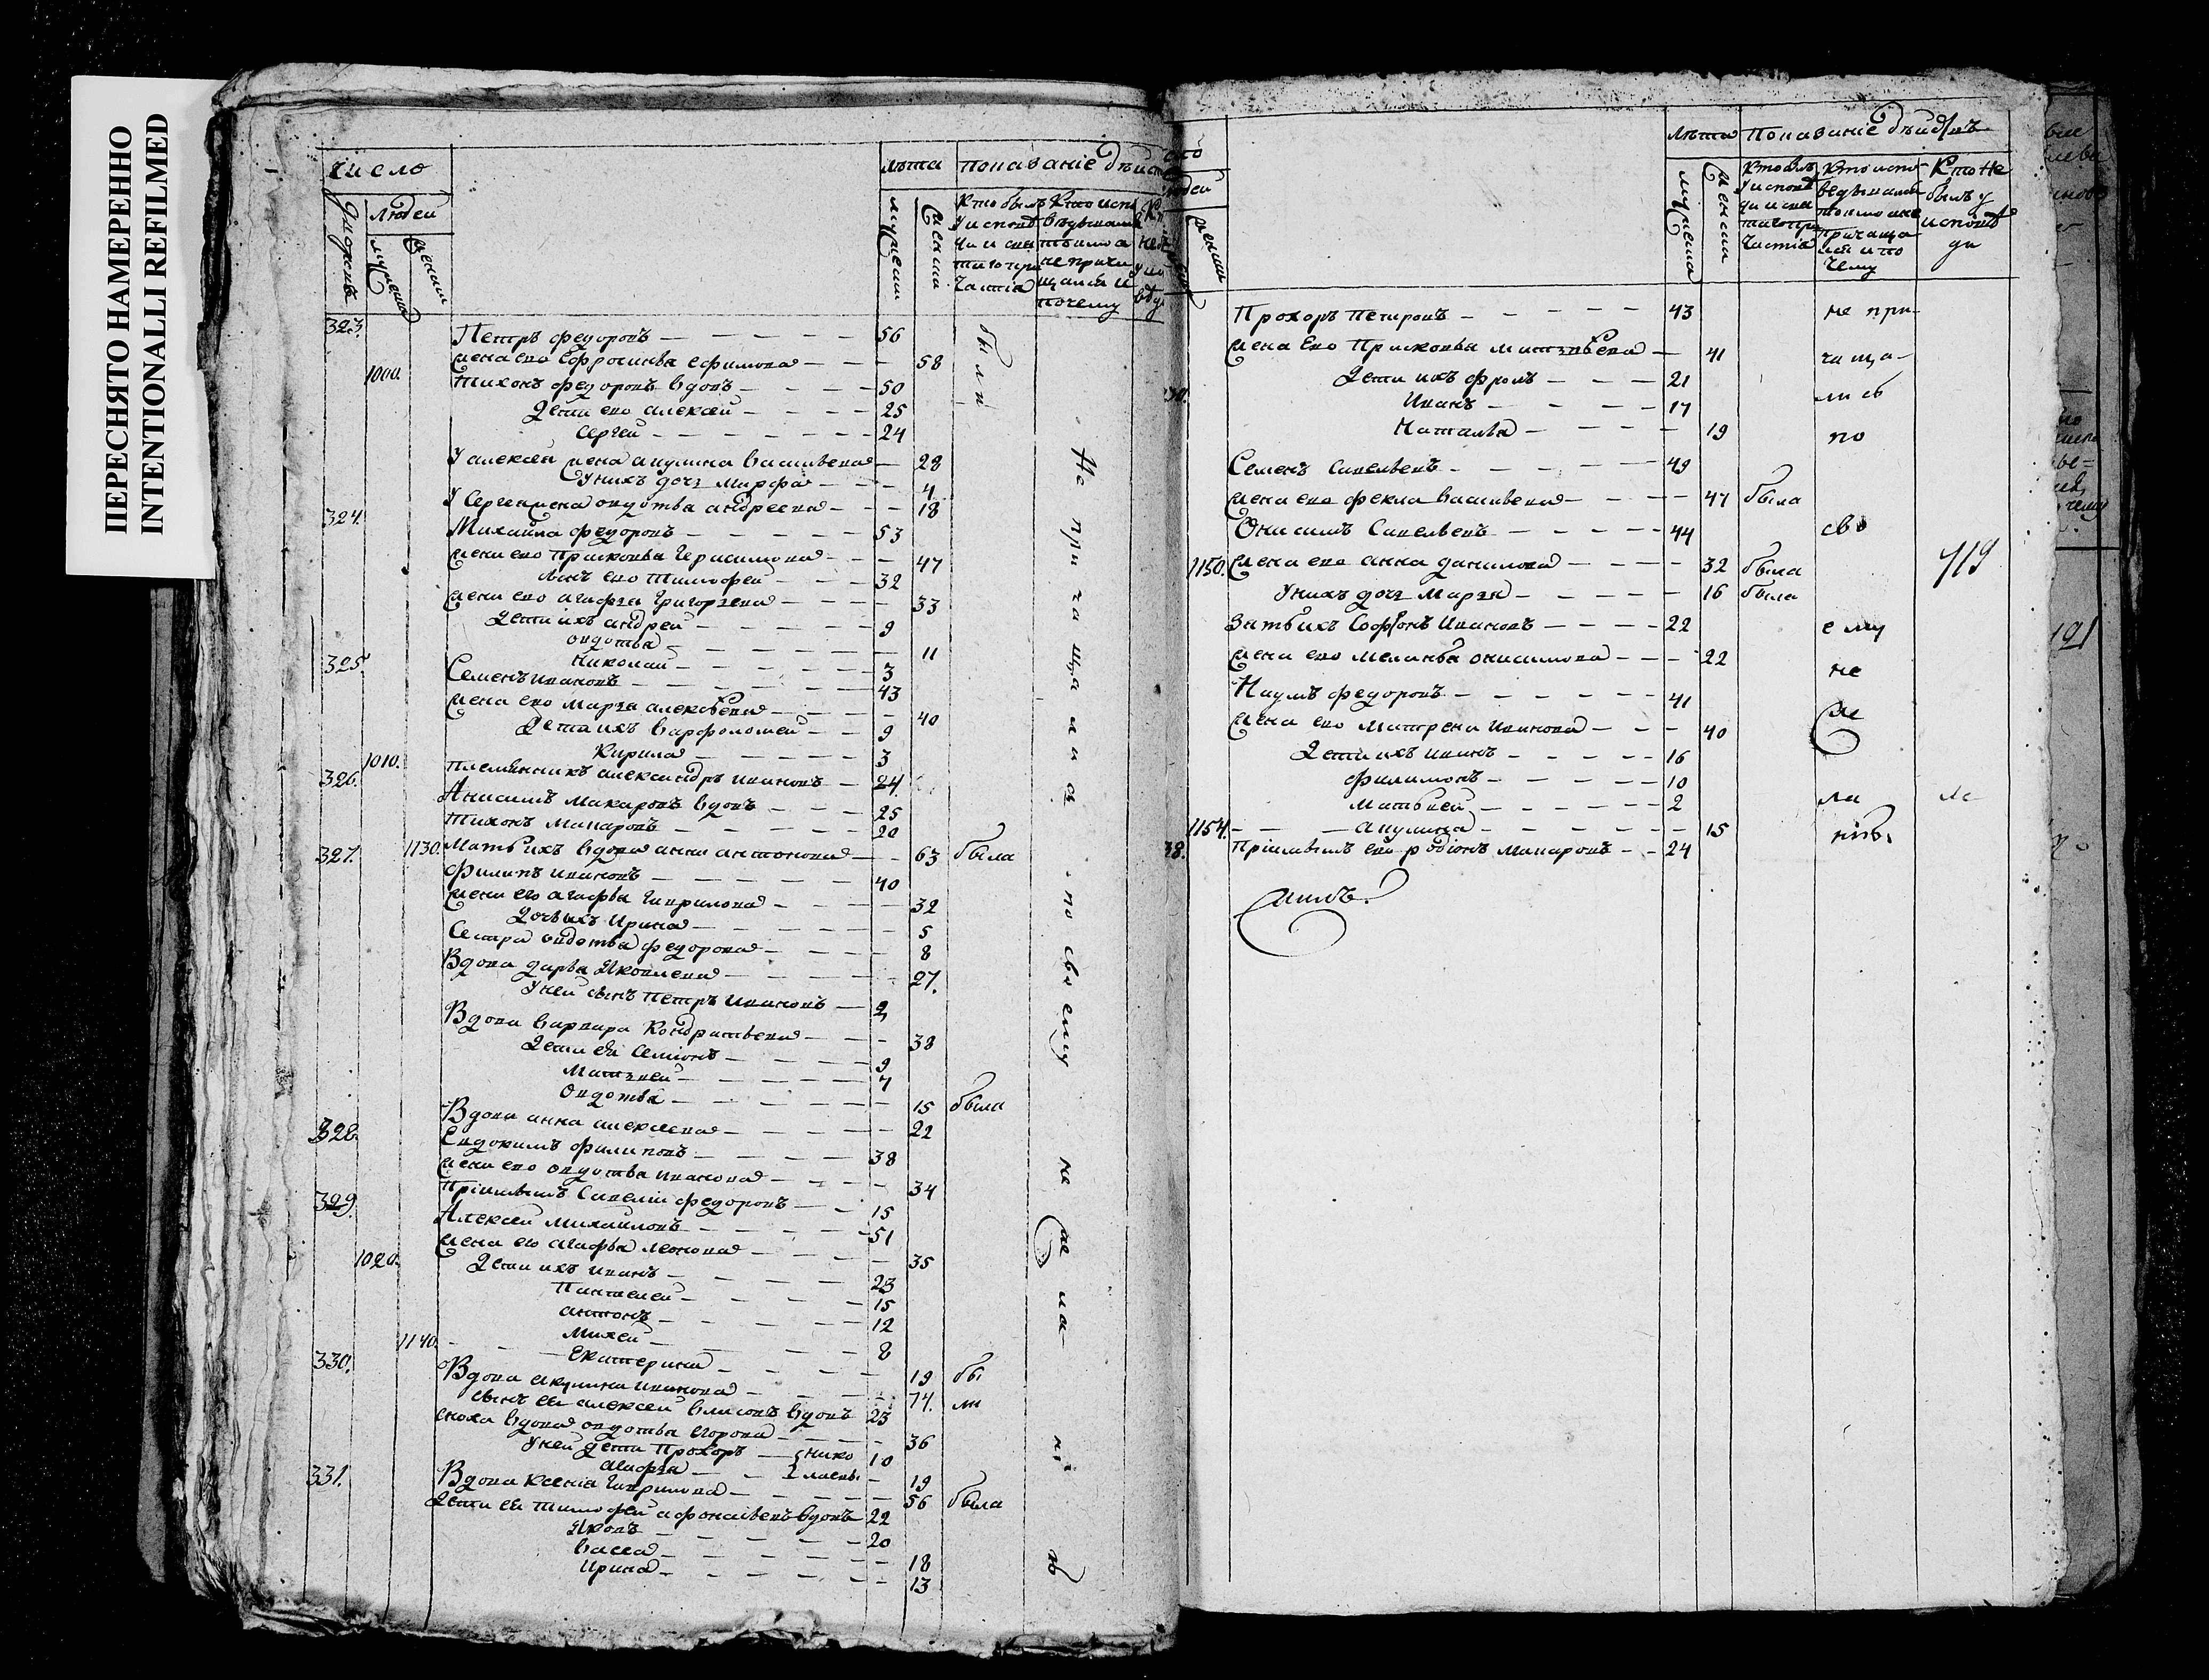 ПЕРЕСНЯТО НАМЕРЕННО
INTENTIONALLI REFILMED
число
Людей
мужеска
женска
лѣта
показаніе дѣйст
мужеска
женска
Кто былъ у исповѣди и святаго причастія
Кто исповѣдывался токмо а не причащался и почему
323. Петръ федоровъ — 56 были
жена ево Ефросинья ефимова — 58
1000. Тихонъ федоровъ вдовъ — 50
Дети ево алексѣй — 25
Сергей — 24
У алексѣя жена акулина васильева — 28
У нихъ дочь Марфа — 4
У Сергея жена овдотья андреева — 18
324. Михайла федоровъ — 53
жена ево Прасковья Герасимова — 47
сынъ ево Тимофей — 32
жена ево агафья Григорьева — 33
Дети ихъ андрей — 9
овдотья — 11
Николай — 3
325. Семенъ ивановъ — 43
жена ево Марья алексѣева — 40
Дети ихъ варфоломей — 9
Кирила — 3
1010. племянникъ александръ ивановъ — 24
326. Анисимъ макаровъ вдовъ — 25
Тихонъ макаровъ — 20
1130. Мать ихъ вдова анна антонова — 63 была
327. Филипъ ивановъ — 40
жена его агафья гаврилова — 32
Дочь ихъ Ирина — 5
Сестра овдотья федорова — 8
Вдова дарья Яковлева — 27.
У ней сынъ Петръ ивановъ — 2
Вдова варвара Кондратьева — 38
Дети ея Семіонъ — 9
Матвей — 7
Овдотья — 15 была
Вдова анна алексеева — 22
328. Евдокимъ филиповъ — 38
жена ево овдотья иванова — 34
Пріимышъ Савелій федоровъ — 15
329. Алексей михайловъ — 51
жена его агафья леонова — 35
1020. Дети ихъ иванъ — 23
Пантелей — 15
антонъ — 12
Михей — 8
1140. — Екатерина — 19 бы
330. Вдова акулина иванова — 74. ли
сынъ ея алексей власовъ вдовъ 23
сноха вдова овдотья егорова — 36
У ней дети Прохоръ — 10
агафья — 19
331. Вдова Ксенія Гаврилова — 56 была
Дети ея тимофей афонасьевъ вдовъ 22
Яковъ — 20
васса — 18
Ирина — 13
Не причащались по своему не
лѣта
показаніе дѣйствъ
мужеска
женска
Кто былъ у исповѣди и святаго причастія
Кто исповѣдывался токмо не причащался и почему
Кто не былъ у исповѣди
Прохоръ петровъ — 43 не при-
жена ево Прасковья матвѣева — 41 чаща-
Дети ихъ фролъ — 21
Иванъ — 17 лись
Наталья — 19 по
Семенъ савельевъ — 49
жена ево фекла васильева — 47 была
Онисимъ Савельевъ — 44 сво
1150. жена ево анна данилова — 32 была
У нихъ дочь Марья — 16 была
719
Зять ихъ Софронъ ивановъ — 22 ему
жена ево меланья онисимова — 22 не
Наумъ федоровъ — 41 же
жена ево матрена иванова — 40
Дети ихъ иванъ — 16
филимонъ — 10
матвей — 2 ла
1154. — акулина — 15 нію.
Пріимышъ ево родіонъ макаровъ — 24